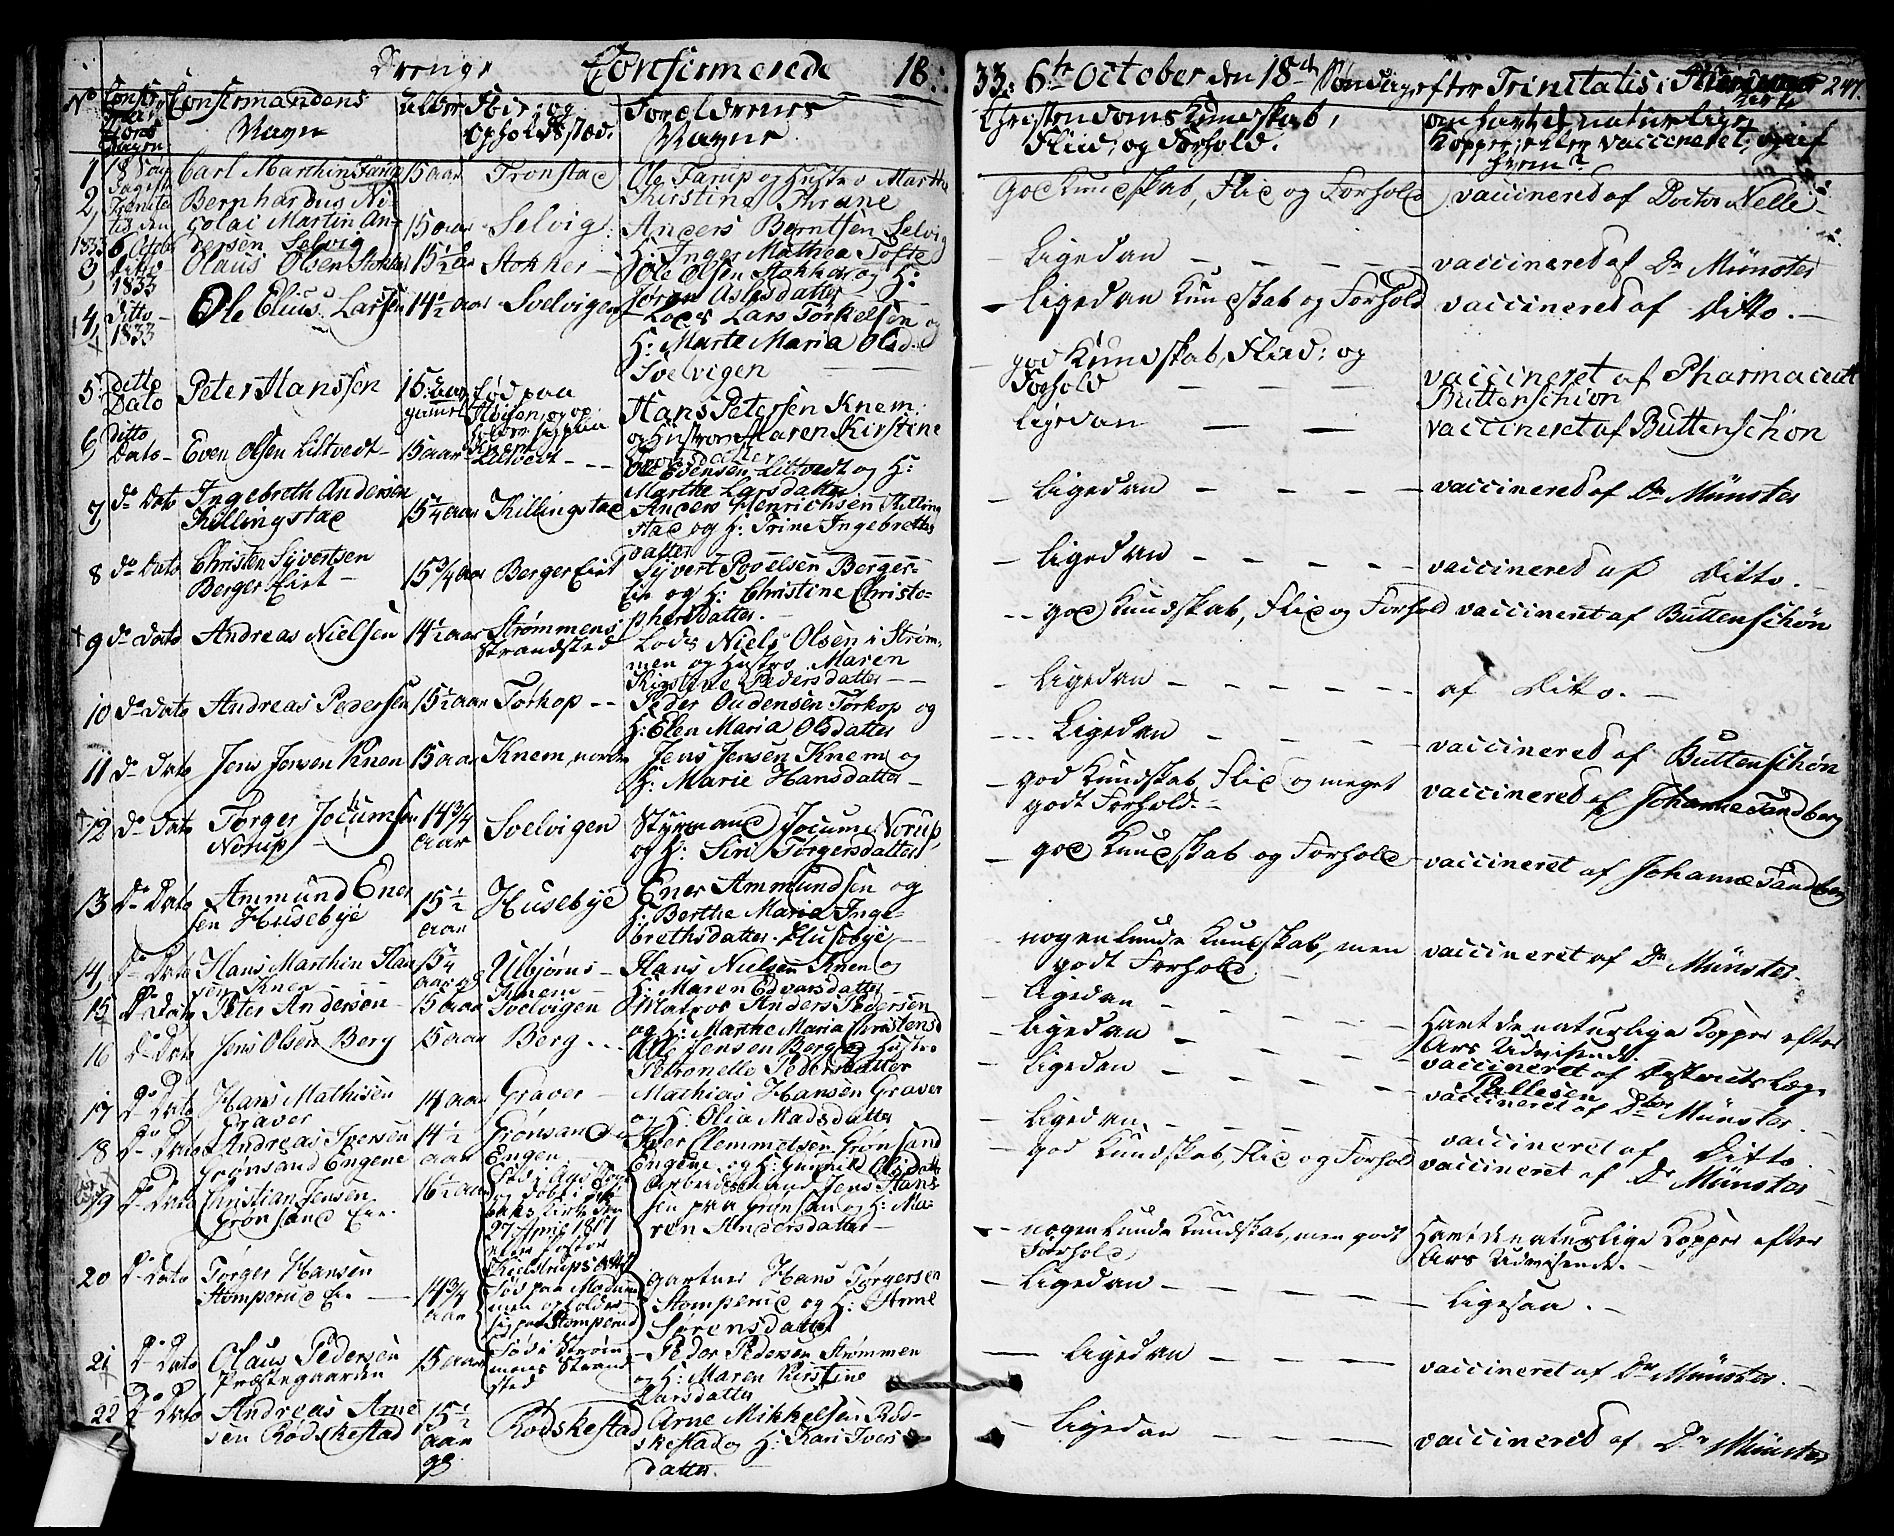 Drenge Confirmerede 18
33. 6te October den 18de Søndag efter Trinitatis i 247.
No Confirmandens Navn Alder Føde- og Opholdssted. Forældrenes Navne
Christendoms Kundskab, Fliid, og Forhold. om havt de naturlige Kopper, eller vaccineret, og af hvem?
1 18 Søn Carl Marthin Farup 15 aar Tronstad Ole Farup og Hustro Marthe Kirstine Thrane
God Kundskab, Flid og Forhold vaccinered af Doctor Nelle
2, Bernhardus Nicolai Martin Andersen Selvig 15 aar Selvig Anders Berntsen Selvig H: Inger Mathea Tofte
Ligedan vaccinered af Dr Münster
3, ditto 1833 Olaus Olsen Stokker 15 1/2 aar Stokker Ole Olsen Stokker og H: Jøran Aslesdatter
Ligedan Kundskab og Forhold vaccinered af Ditto.
4, Ditto 1833 Ole Elius Larsen 14 1/2 aar Svelvigen Lods Lars Torkelsen og H: Marte Maria Olsd. Svelvigen
god Kundskab, Fliid: og Forhold vaccineret af Pharmaceut Buttenschion
5, ditto Dato Peter Hanssen 15 aar gamel født paa Hans Petersen Knem og Hustro Maren Kirstine
ligedan vaccineret af Buttenschøn
6, ditto Dato Even Olsen Liltvedt 15 aar Liltvedt Ole Evensen Liltvedt og H: Marthe Larsdatter
Ligedan vaccinered af Dr Münster
7, do Dato Ingebreth Andersen Killingstad 15 1/4 aar Killingstad Anders Henrichsen Killingstad og H: Trine Ingebrettesdatter
Ligedan vaccinered af Ditto.
8 do Dato Christen Syvertsen Berger Eiet 15 3/4 aar Berger Eiet Syvert Povelsen Berger Eie og H: Christine Christophersdatter
god Kundskab, Flid og Forhold vaccineret af Buttenschøn
9 do Dato Andreas Nielsen 14 1/2 aar Strømmens Strandsted Lods Niels Olsen i Strømmen og Hustro Maren Kirstine Pedersdatter
Ligedan af Ditto.
10 do Dato Andreas Pedersen 15 1/2 aar Tørkop Peder Oudensen Tørkop og H: Elen Maria Olsdatter
Ligedan vaccinered af Buttenschøn
11 do Dato Jens Jensen Knem 15 aar Knem, nordre Jens Jensen Knem og H: Marie Hansdatter
god Kundskab Flid og meget godt Forhold. vaccinered af Johanne Sandberg
12 do Dato Torger Jocumsen Norup 14 3/4 aar Svelvigen Styrmand Jocum Norup, og H: Siri Torgersdatter
god Kundskab og Forhold vaccineret af Johanne Sandberg
13 do Dato Ammund Enersen Husebye 15 1/2 aar Husebye Ener Ammundsen og H: Berthe Maria Ingebrethsdatter Husebye
nogenlunde Kundskab, men godt Forhold vaccineret af Dr Münster
14, do Dato Hans Marthin Hansen Knem 15 1/4 aar Ulbjørns Knem Hans Nielsen Knem og H: Maren Edvarsdatter
Ligedan
15 do Dato Peter Andersen 15 aar Svelvigen Matros Anders Pedersen og H: Marthe Maria Christensd
Ligedan Havt de naturlige Kopper efter Ars Udvisende.
16 do Dato Jens Olsen Berg 15 aar Berg Ole Jensen Berg og Hustro Petronelle Pedersdatter
Ligedan vaccineret af Districts Læge Pallesen
17 do Dato Hans Mathisen Graver 14 aar Graver Mathias Hansen Graver og H: Olia Madsdatter
Ligedan vaccineret af Dr Münster.
18 do Dato Andreas Iversen Grønsand Engene 14 1/2 aar Grønsand Engen Iver Clemmetsen Grønsand Engene og H: Gunnild Olsdatter
god Kundskab, Flid og Forhold vaccineret af Ditto
19 do Dato Christian Jensen Grønsand Eie 16 1/2 aar 27 April 1817 Arbeidsmand Jens Hansen paa Grønsand og H: Maren Andersdatter
vaccineret af Dr Münster
nogenlunde Kundskab, men godt Forhold Havt de naturlige Kopper efter Ars Udvisende.
20 do Dato Torger Hansen Stomperud Eie 14 3/4 aar Fød paa Modum men opholder sig paa Stomperud gartner Hans Torgersen Stomperud og H: Anne Sørensdatter
Ligedan Ligesaa.
21 do Dato Olaus Pedersen Præstegaarden 15 aar Fød i Strømmens Strandsted Peder Pedersen Strømmen og H: Maren Kirstine Larsdatter
Ligedan vaccineret af Dr Münster.
22 do Dato Andreas Arnesen Rødskestad 15 1/2 aar Rødskestad Arne Mikkelsen Rødskestad og H: Kari Iversdatter.
Ligedan vaccinered af Dr Münster